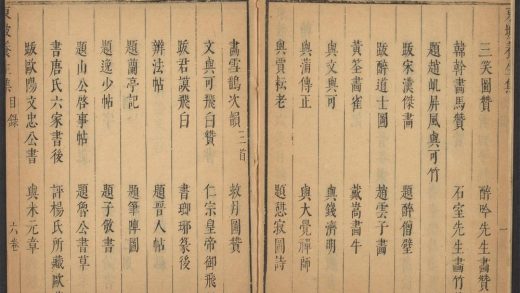 東坡養生集
三笑圖贊 醉吟先生畫贊
韓幹畫馬贊 石室先生畫竹
題趙屼屏風與可竹
跋宋漢傑畫 題醉僧壁
跋醉道士圖 趙雲子畫
黃筌畫雀 戴嵩畫牛
與文與可 與錢濟明
與蒲傳正 與大覺禪師
與賈耘老 題憩寂圖詩
畫雪鶴次韻三首 救月圖贊
文與可飛白贊 仁宗皇帝御飛
跋君謨飛白 書瑯琊篆後
辨法帖 題晉人帖
題蘭亭記 題筆陣圖
題逸少帖 題子敬書
題山公啓事帖 題魯公書草
書唐氏六家書後 評楊氏所藏歐
跋歐陽文忠公書 與米元章
東坡養生集 目錄 六卷